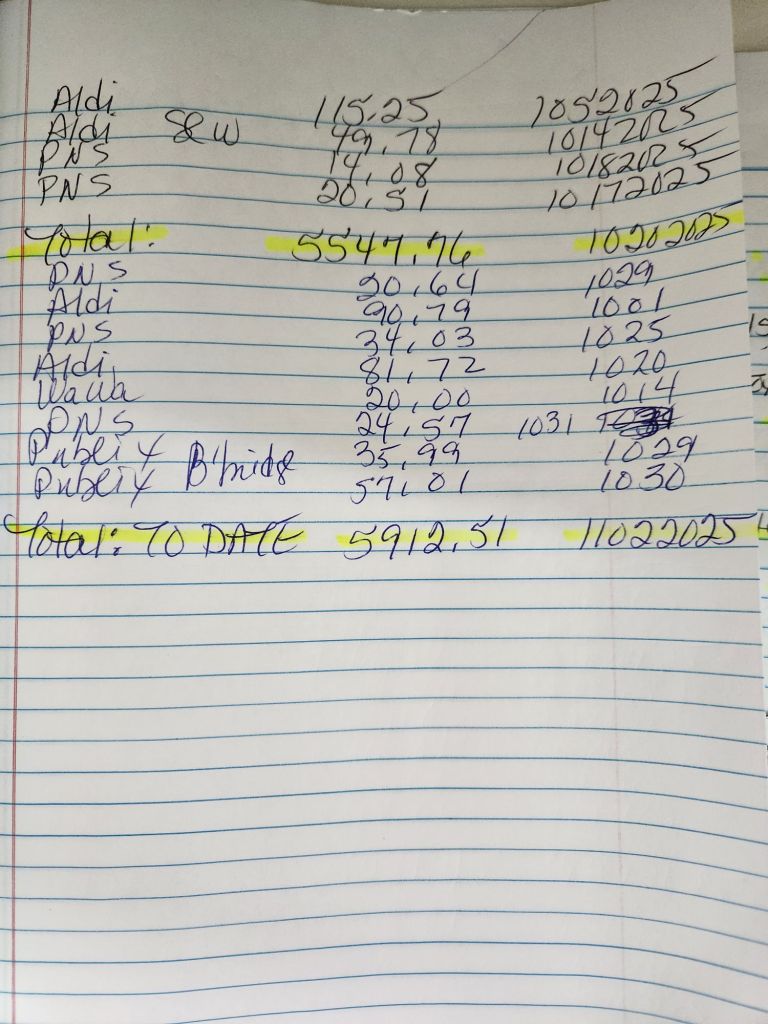 Aldi 115.25 1052025
Aldi S&W 49.78 10142025
PNS 14.08 10182025
PNS 20.51 10172025
Total: 5547.76 10202025
PNS 20.64 1029
Aldi 90.79 1001
PNS 34.03 1025
Aldi 81.72 1020
Wawa 20.00 1014
PNS 24.57 1031
Publix 35.99 1029
Publix B'bridge 57.01 1030
Total: TO DATE 5912.51 11022025